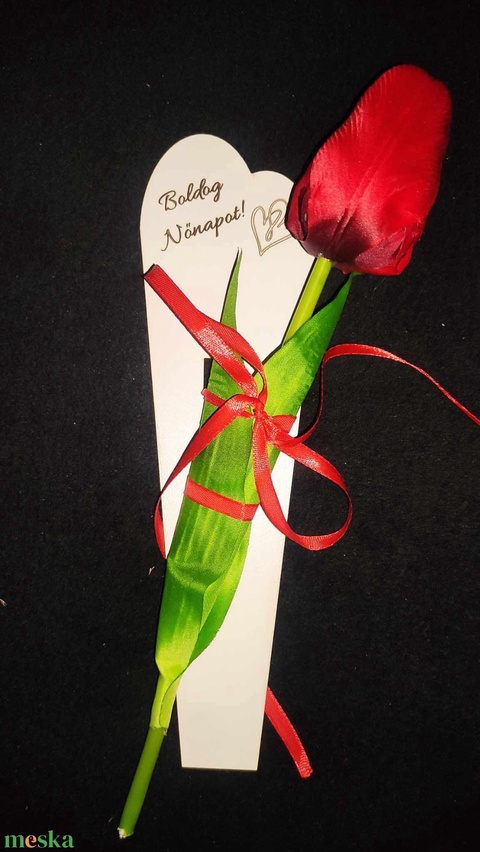 Boldog
Nőnapot!
meska